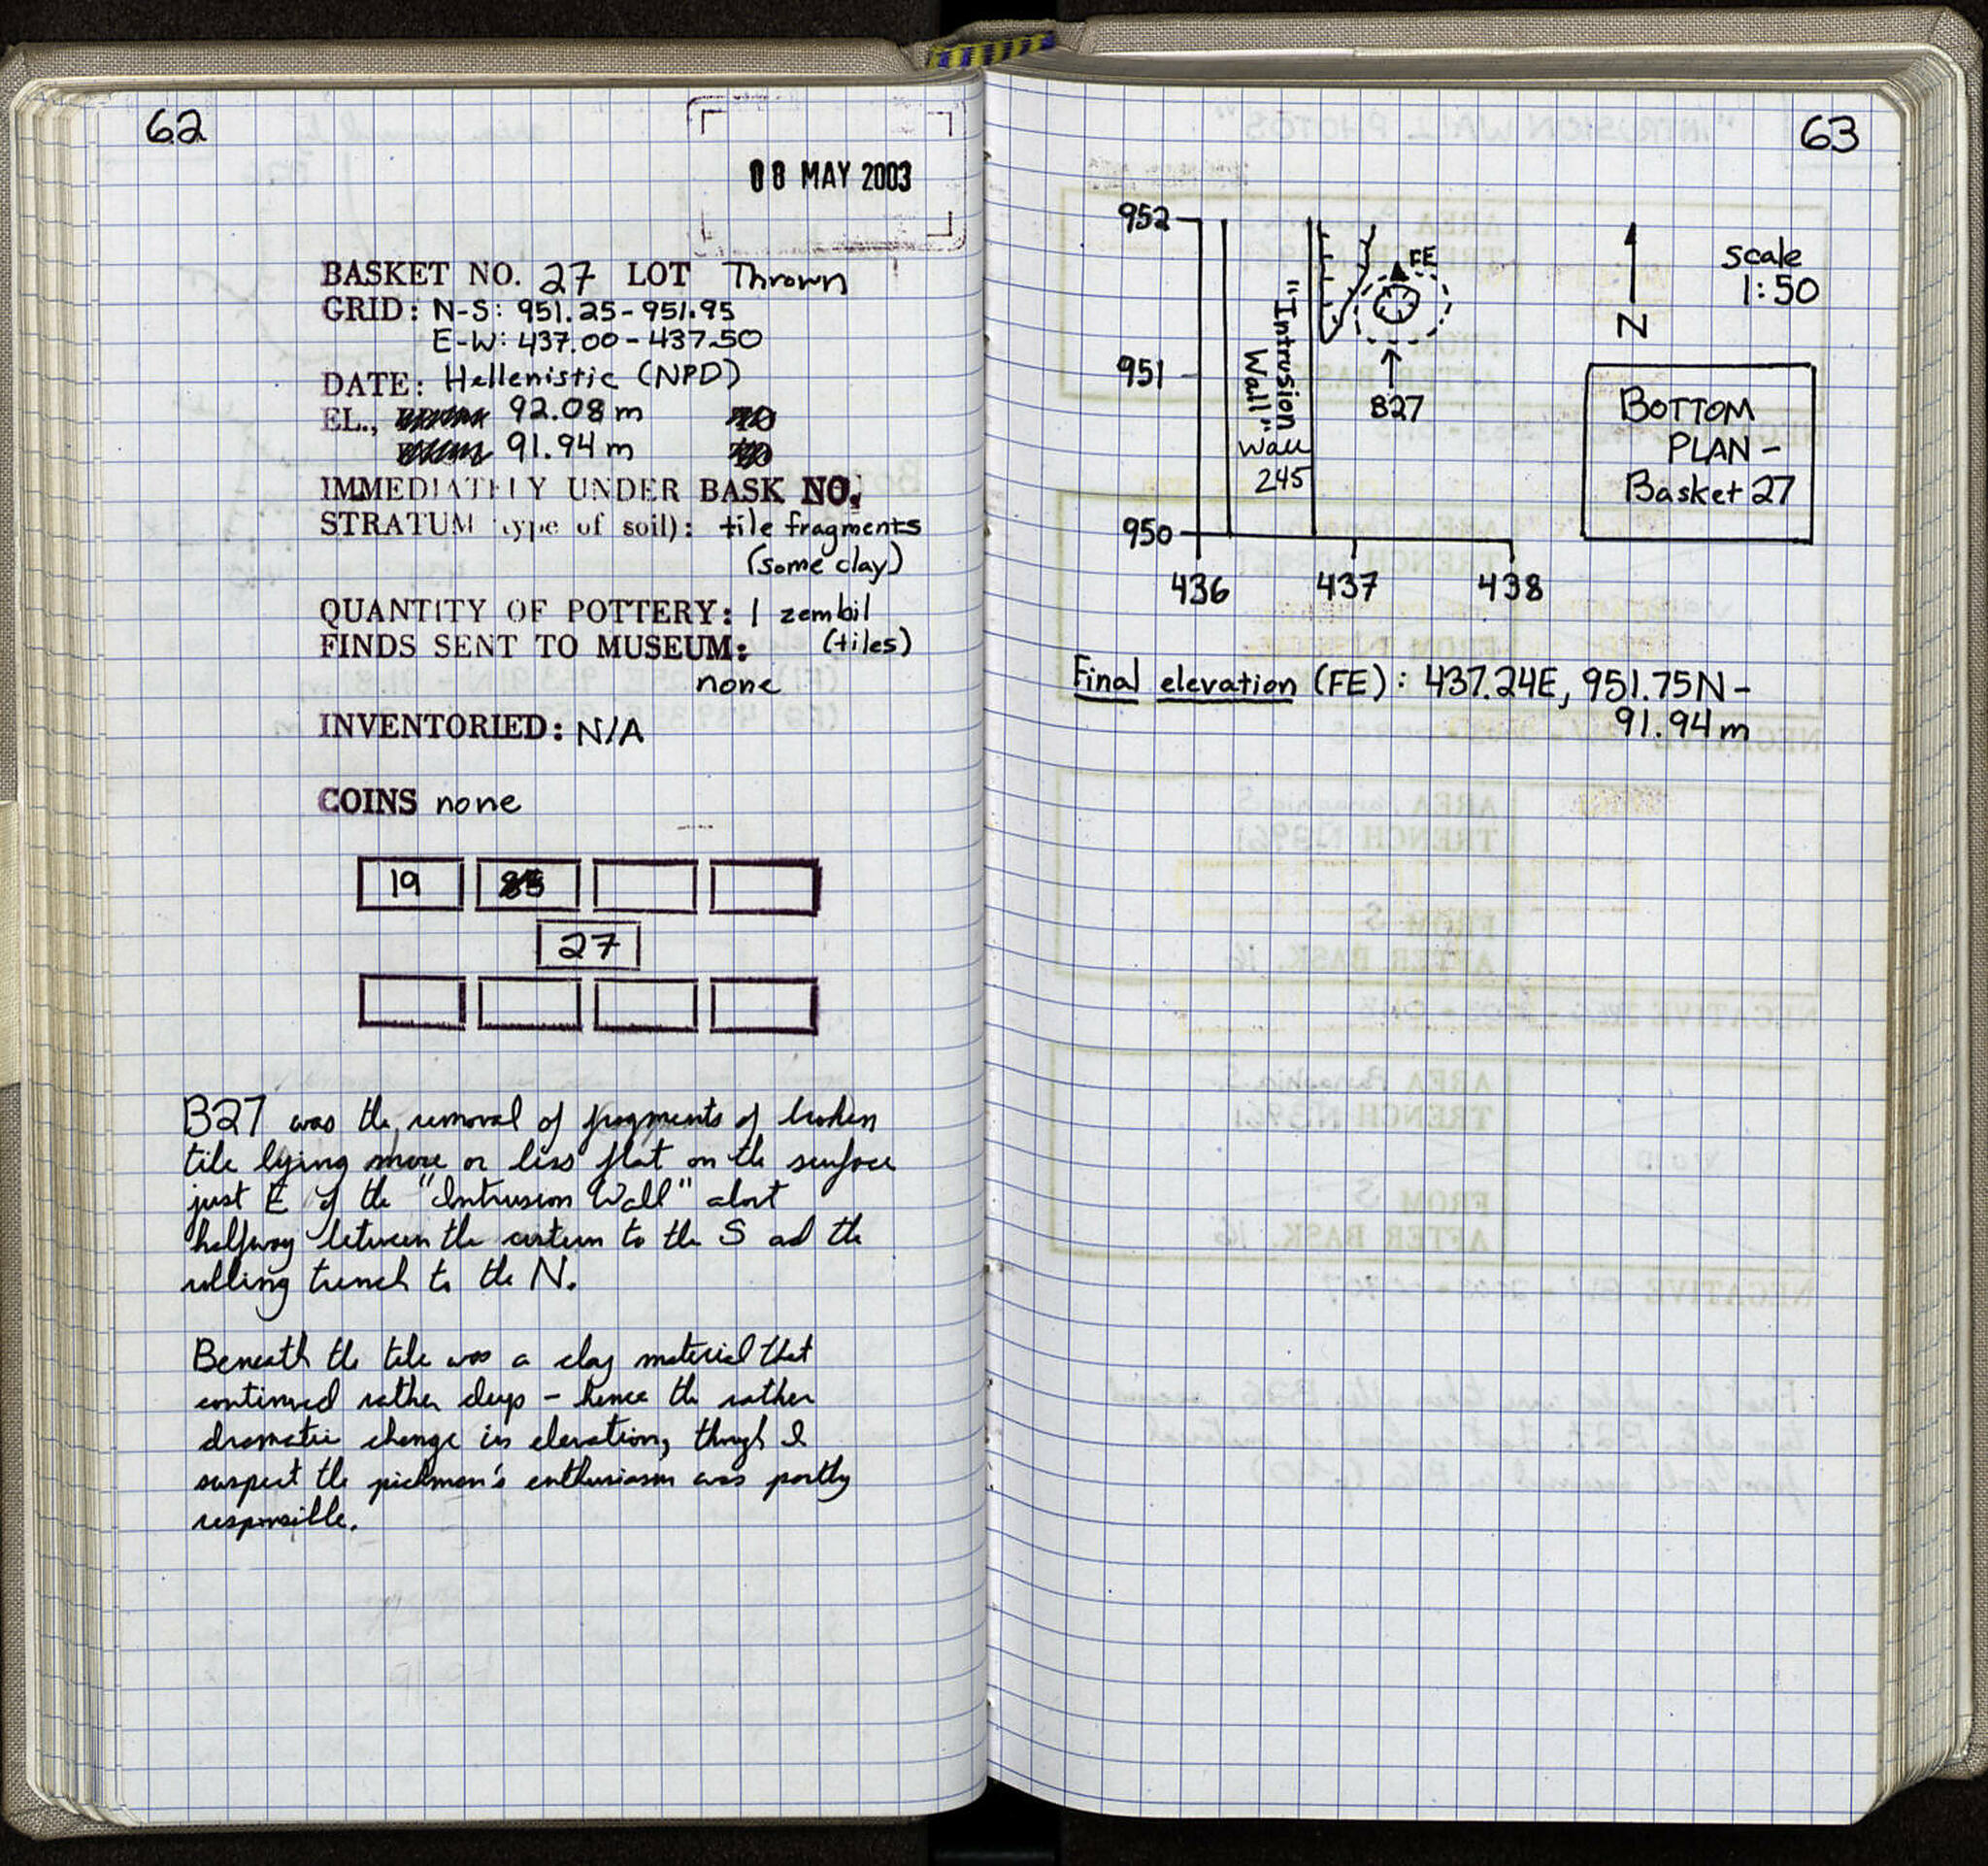 62
08 MAY 2003
BASKET NO. 27 LOT Thrown
GRID: N-S: 951.25-951.95
E-W: 437.00-437.50
DATE: Hellenistic (NPD)
EL., 92.08 m
91.94 m
IMMEDIATELY UNDER BASK NO.
STRATUM type of soil): tile fragments
(some clay)
QUANTITY OF POTTERY: 1 zembil
FINDS SENT TO MUSEUM: (tiles)
none
INVENTORIED: N/A
COINS none
19
27
B27 was the removal of fragments of broken
tile lying more or less flat on the surface
just E of the "Intrusion Wall" about
halfway between the cistern to the S and the
robbing trench to the N.
Beneath the tile was a clay material that
continued rather deep - hence the rather
dramatic change in elevation, though I
suspect the pickman's enthusiasm was partly
responsible.
63
952
951
950
436 437 438
"Intrusion
Wall"
Wall
245
FE
B27
N
scale
1:50
BOTTOM
PLAN -
Basket 27
Final elevation (FE): 437.24E, 951.75N -
91.94 m